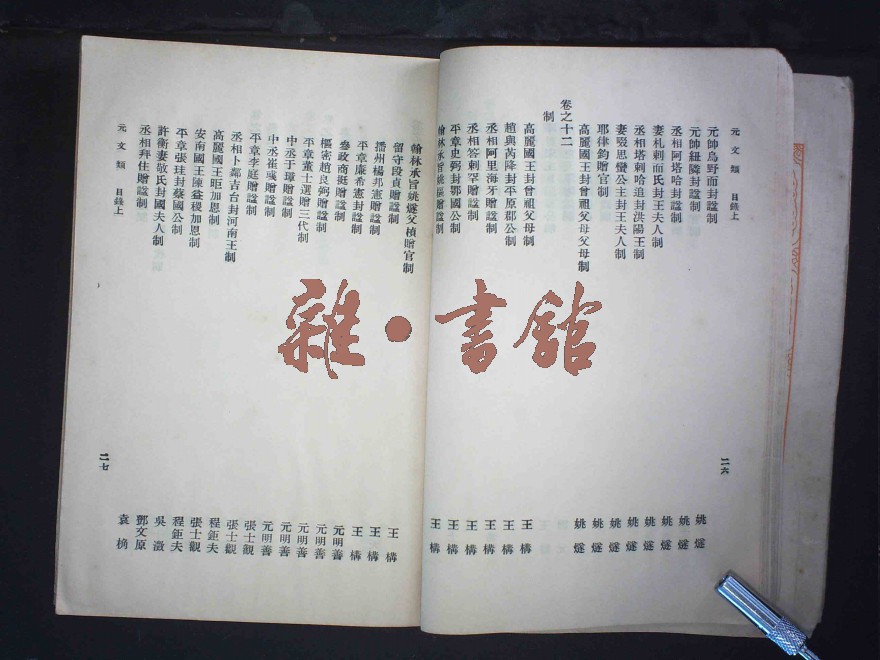 元文類 目錄上
元帥烏野而封謚制 姚燧
元帥紐隣封謚制 姚燧
丞相阿塔哈封謚制 姚燧
妻札剌而氏封王夫人制 姚燧
丞相塔剌哈追封洪陽王制 姚燧
妻弘思蠻公主封王夫人制 姚燧
耶律鈞贈官制 姚燧
高麗國王封曾祖父母父母制 姚燧
卷之十二
制
高麗國王封曾祖父母制 王構
趙與芮降封平原郡公制 王構
丞相阿里海牙贈謚制 王構
丞相答剌罕贈謚制 王構
平章史弼封鄂國公制 王構
翰林承旨姚樞贈謚制 王構
二六
翰林承旨姚燧父楨贈官制 王構
留守段貞贈謚制 王構
播州楊邦憲贈謚制 王構
平章廉希憲封謚制 元明善
參政商挺贈謚制 元明善
樞密趙良弼贈謚制 元明善
平章董士選贈三代制 元明善
中丞于璋贈謚制 元明善
中丞崔彧贈謚制 張士觀
平章李庭贈謚制 張士觀
丞相卜鄰吉台封河南王制 程鉅夫
高麗國王昛加恩制 張士觀
安南國王陳益稷加恩制 程鉅夫
平章張珪封蔡國公制 吳澂
許衡妻敬氏封國夫人制 鄧文原
丞相拜住贈謚制 袁桷
元文類 目錄上
二七
雜·書館